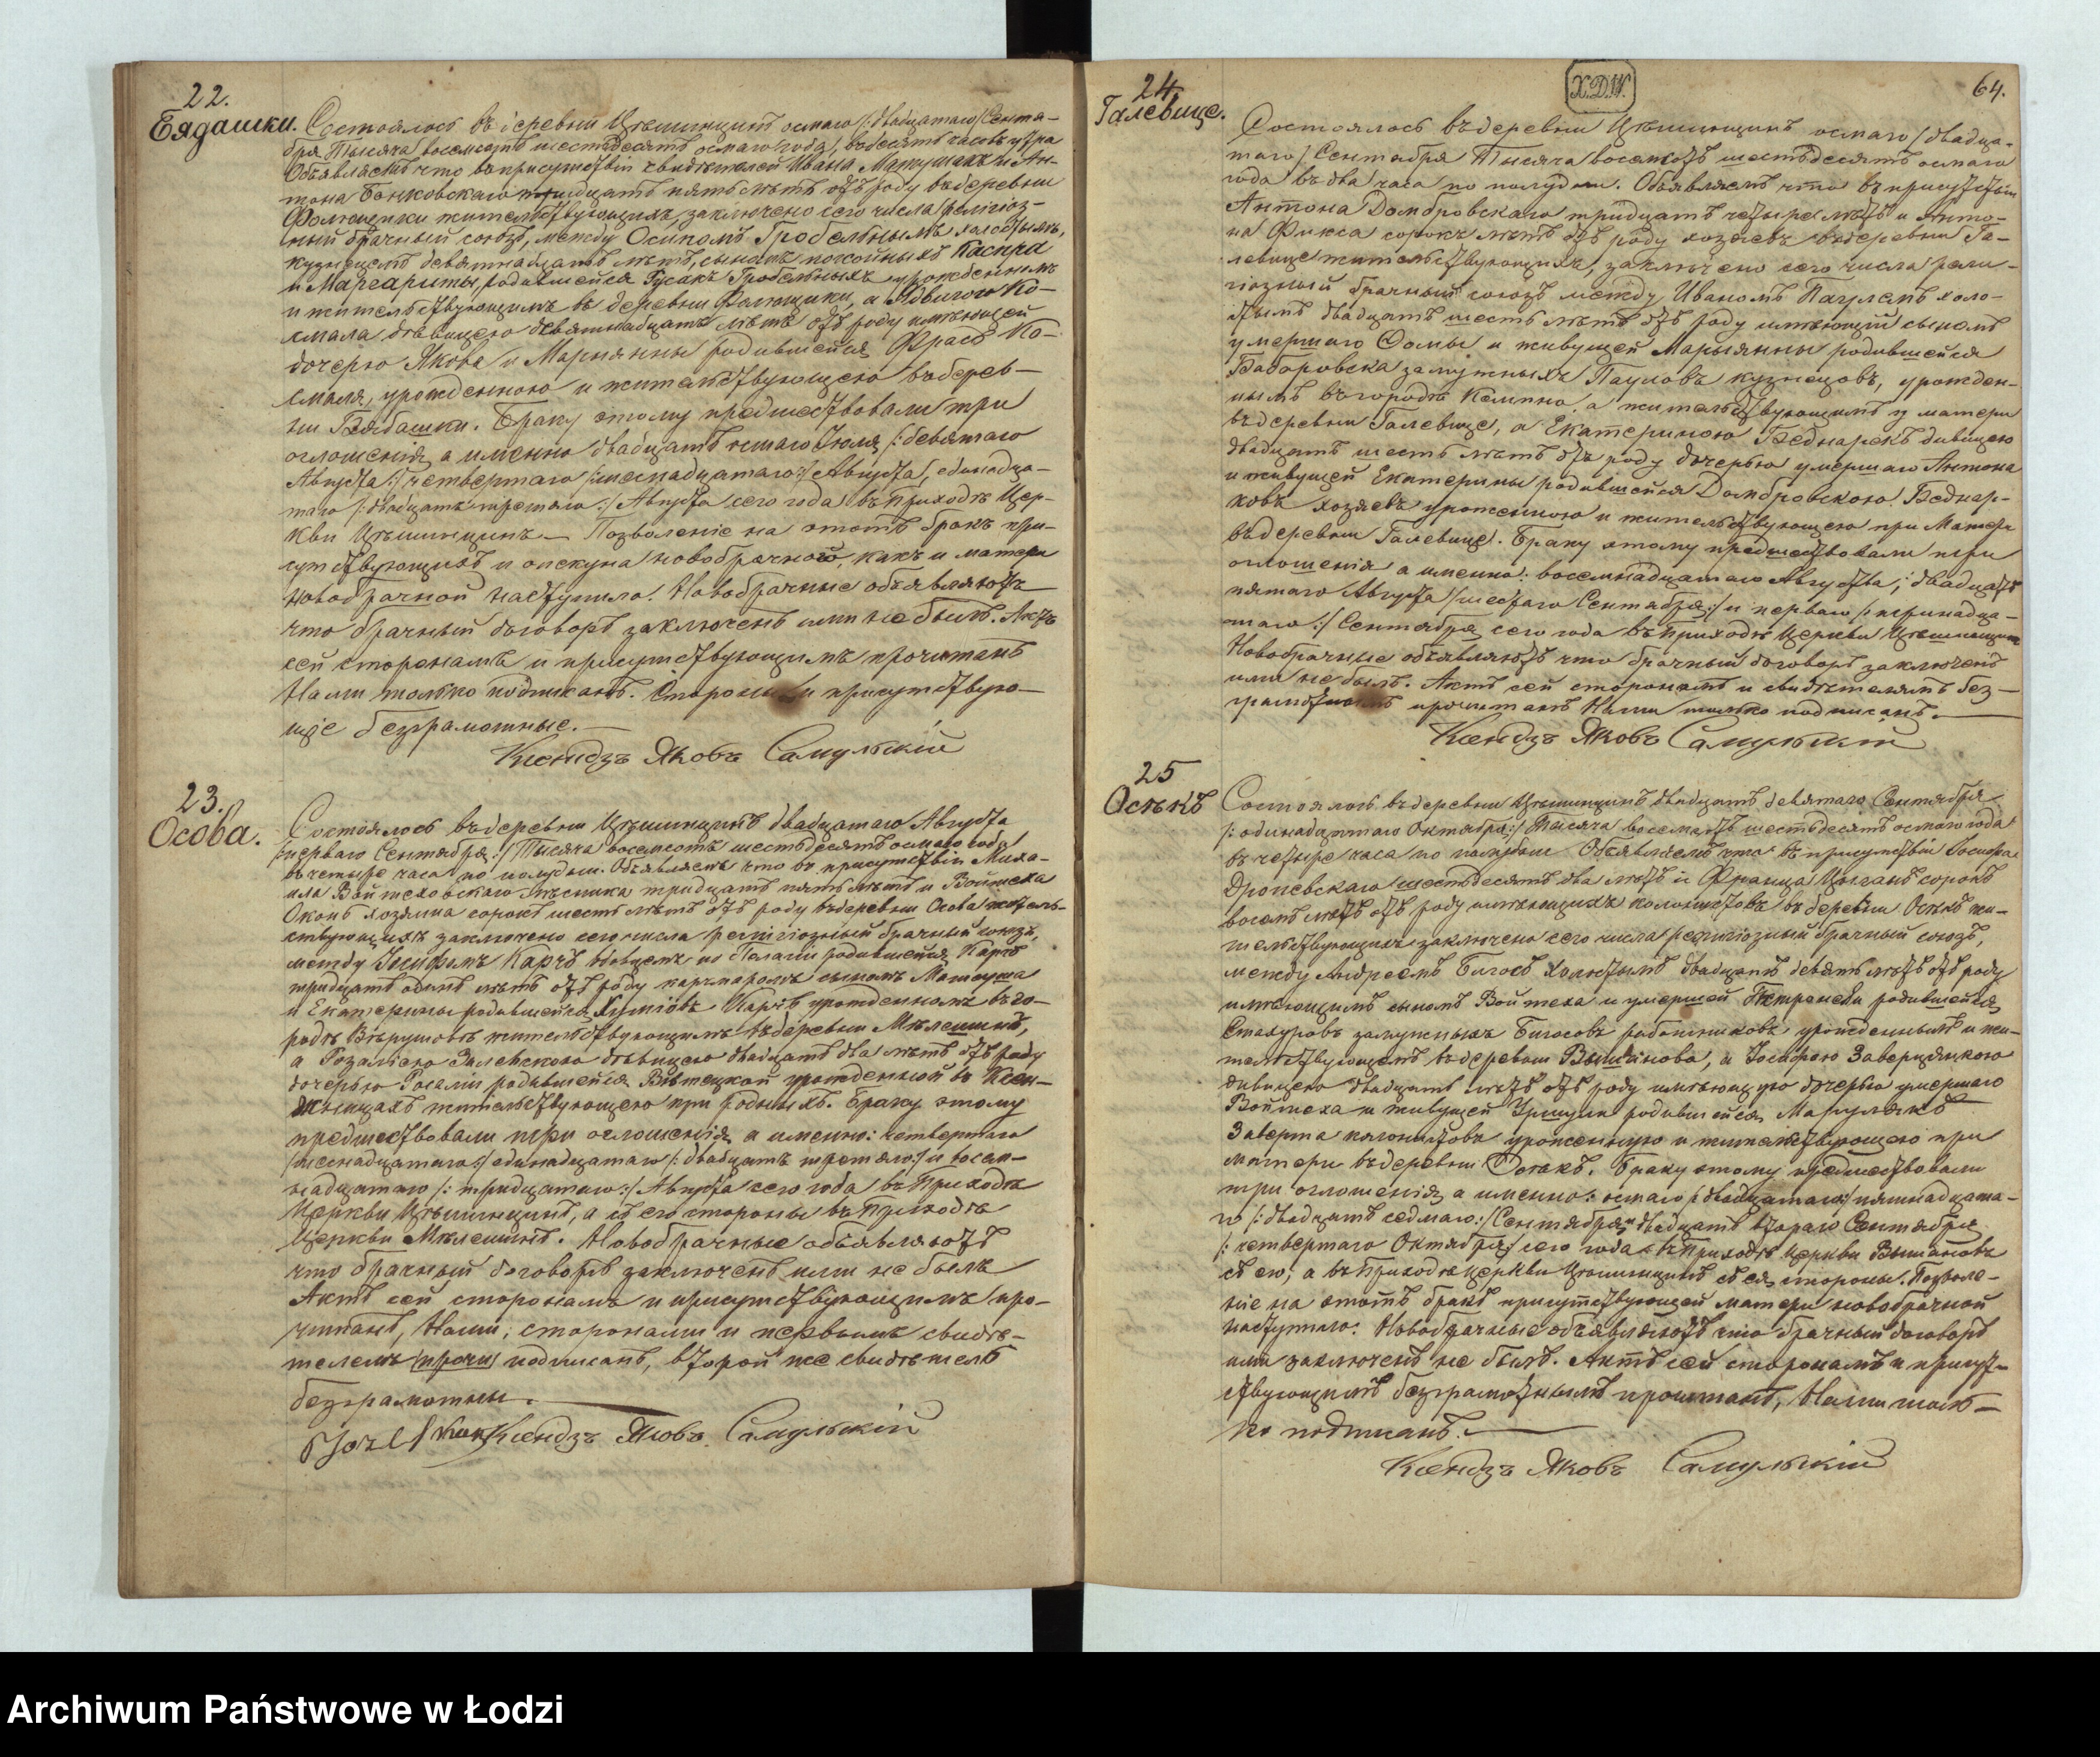 22.
Бядашки.
Состоялось въ деревни Цѣшинцинѣ осмаго /:двадцатаго/ Сентя-
бря Тысяча восемсотъ шестьдесятъ осмаго года, въ десять часовъ утра
Объявляемъ что въ присутствіи свидѣтелей Ивана Матушакъ и Ан-
тона Банковскаго тридцать пять лѣтъ отъ роду въ деревни
жительствующихъ, заключено сего числа религіоз-
ный брачный союзъ, между Осипомъ Гробельнымъ холостымъ,
кузнецомъ девятнадцать лѣтъ, сыномъ покойныхъ Каспра
и Маргариты, родившейся Гусакъ Гробельныхъ урожденнымъ
и жительствующимъ въ деревни Фалющики, а Ядвигою Ко-
смала дѣвицею девятнадцать лѣтъ отъ роду имѣющей
дочерью Якова и Марианны родившейся Фрасъ Ко-
смаля, урожденною и жительствующею въ дерев-
ни Бядашки. Браку этому предшествовали три
оглошенія а именно двадцать осмаго Іюля /:девятаго
Августа:/ четвертаго /:шеснадцатаго:/ Августа, единадца-
таго /:двадцать третяго:/ Августа сего года въ Приходѣ Цер-
кви Цѣшинцинъ — Позволеніе на этотъ бракъ при-
сутствующихъ и опекуна новобрачного, какъ и матери
новобрачной наступило. Новобрачные объявляютъ
что брачный договоръ заключенъ ими не былъ. Актъ
сей сторонамъ и присутствующимъ прочитанъ
Нами только подписанъ. Стороны и присутствую-
щіе безграмотные.
Ксендзъ Яковъ Самульскій
23.
Осова.
Состоялось въ деревни Цѣшинцинѣ двадцатаго Августа
/:перваго Сентября:/ Тысяча восемсотъ шестьдесятъ осмаго года
въ четыре часа по полудни. Объявляемъ что въ присутствіи Миха-
ила Войтеховскаго лѣсника тридцать пять лѣтъ и Войтеха
Оконь хозяина сорокъ шесть лѣтъ отъ роду въ деревни Осова житель-
ствующихъ заключено сего числа религіозный брачный союзъ,
между Іосифомъ Карчъ вдовцемъ по Пелагіи родившейся Карчъ
тридцать одинъ лѣтъ отъ роду карчмаромъ сыномъ Матеуша
и Екатерины родившейся Карчъ урожденномъ въ го-
родѣ Вѣрушовѣ жительствующимъ въ деревни Мѣлешинѣ,
а Розаліею Залевскою дѣвицею двадцать два лѣтъ отъ роду
дочерью Розаліи родившейся Витецкой урожденной въ Ксен-
жницахъ жительствующею при родныхъ. Браку этому
предшествовали три оглошенія а именно: четвертаго
/шеснадцатаго:/ единадцатаго /:двадцать третяго:/ и восем-
надцатаго /:тридцатаго:/ Августа сего года въ Приходѣ
Церкви Цѣшинцинъ, а съ его стороны въ Приходѣ
Церкви Мѣлешинъ. Новобрачные объявляютъ
что брачный договоръ заключенъ ими не былъ
Актъ сей сторонамъ и присутствующимъ про-
читанъ, Нами, сторонами и первымъ свидѣ-
телемъ подписанъ, второй же свидѣтель
безграмотны.
Ксендзъ Яковъ Самульскій
Х.D.W.
64.
24.
Галевице.
Состоялось въ деревни Цѣшинцинъ осмаго /двадца-
таго/ Сентября Тысяча восемсотъ шестьдесятъ осмаго
года въ два часа по полудни. Объявляемъ что въ присутствіи
Антона Домбровскаго тридцать четыре лѣтъ и Анто-
на Фикса сорокъ лѣтъ отъ роду хозяевъ въ деревни Га-
левице жительствующихъ, заключено сего числа рели-
гіозный брачный союзъ между Иваномъ Паулемъ холо-
стымъ двадцать шесть лѣтъ отъ роду имѣющій сыномъ
умершаго Ѳомы и живущей Марыянны родившейся
Баборовска замужныхъ Пауловъ кузнецовъ, урожден-
нымъ въ городѣ Кемпно, а жительствующимъ у матери
въ деревни Галевице, а Екатериною Беднарекъ дивицею
двадцать шесть лѣтъ отъ роду дочерью умершаго Антона
и живущей Екатерины родившейся Домбровскою Беднар-
ковъ хозяевъ уроженною и жительствующею при Матери
въ деревни Галевице. Браку этому предшествовали три
оглошенія а именно: восемнадцатаго Августа, двадцать
пятаго Августа /шестаго Сентября:/ и перваго /:тринадца-
таго:/ Сентября сего года въ приходѣ Церкви Цѣшинцинъ
Новобрачные объявляютъ что брачный договоръ заключенъ
ими не былъ. Актъ сей сторонамъ и свидѣтелямъ без-
грамотнымъ прочитанъ Нами только подписанъ.
Ксендзъ Яковъ Самульскій
25
Осѣкъ
Состоялось въ деревни Цѣшинцинъ двадцать девятаго Сентября
/:одинадцатаго Октября:/ Тысяча восемсотъ шестьдесятъ осмаго года
въ четыре часа по полудни Объявляемъ что въ присутствіи
шестьдесятъ два лѣтъ и Франца Цыганъ сорокъ
восемь лѣтъ отъ роду имѣющихъ колонистовъ въ деревни Осѣкъ жи-
тельствующихъ заключено сего числа религіозный брачный союзъ,
между Андреемъ Бигосъ Холостымъ двадцать девять лѣтъ отъ роду
имѣющимъ сыномъ Войтеха и умершей родившейся
Стахуровъ замужныхъ Бигосовъ работниковъ урожденнымъ и жи-
тельствующемъ въ деревни Вышанова, а Іозефою Заверцяцкою
дивицею двадцать лѣтъ отъ роду имѣющую дочерью умершаго
Войтеха и живущей Уршули родившейся Матулякъ
Заверта колонистовъ уроженную и жительствующею при
матери въ деревни Осѣкъ. Браку этому предшествовали
три оглошенія а именно: осмаго /:двадцатаго:/ пятнадцата-
го /:двадцать седмаго:/ Сентября и двадцать втораго Сентября
/:четвертаго Октября:/ сего года въ приходѣ Церкви Вышановъ
съ его, а въ Приходѣ Церкви Цѣшинцинъ съ ея стороны. Позволе-
ніе на этотъ бракъ присутствующей матери новобрачной
наступило. Новобрачные объявляютъ что брачный договоръ
ими заключенъ не былъ. Актъ сей сторонамъ и присут-
ствующимъ безграмотнымъ прочитанъ, Нами толь-
ко подписанъ.
Ксендзъ Яковъ Самульскій
Archiwum Państwowe w Łodzi